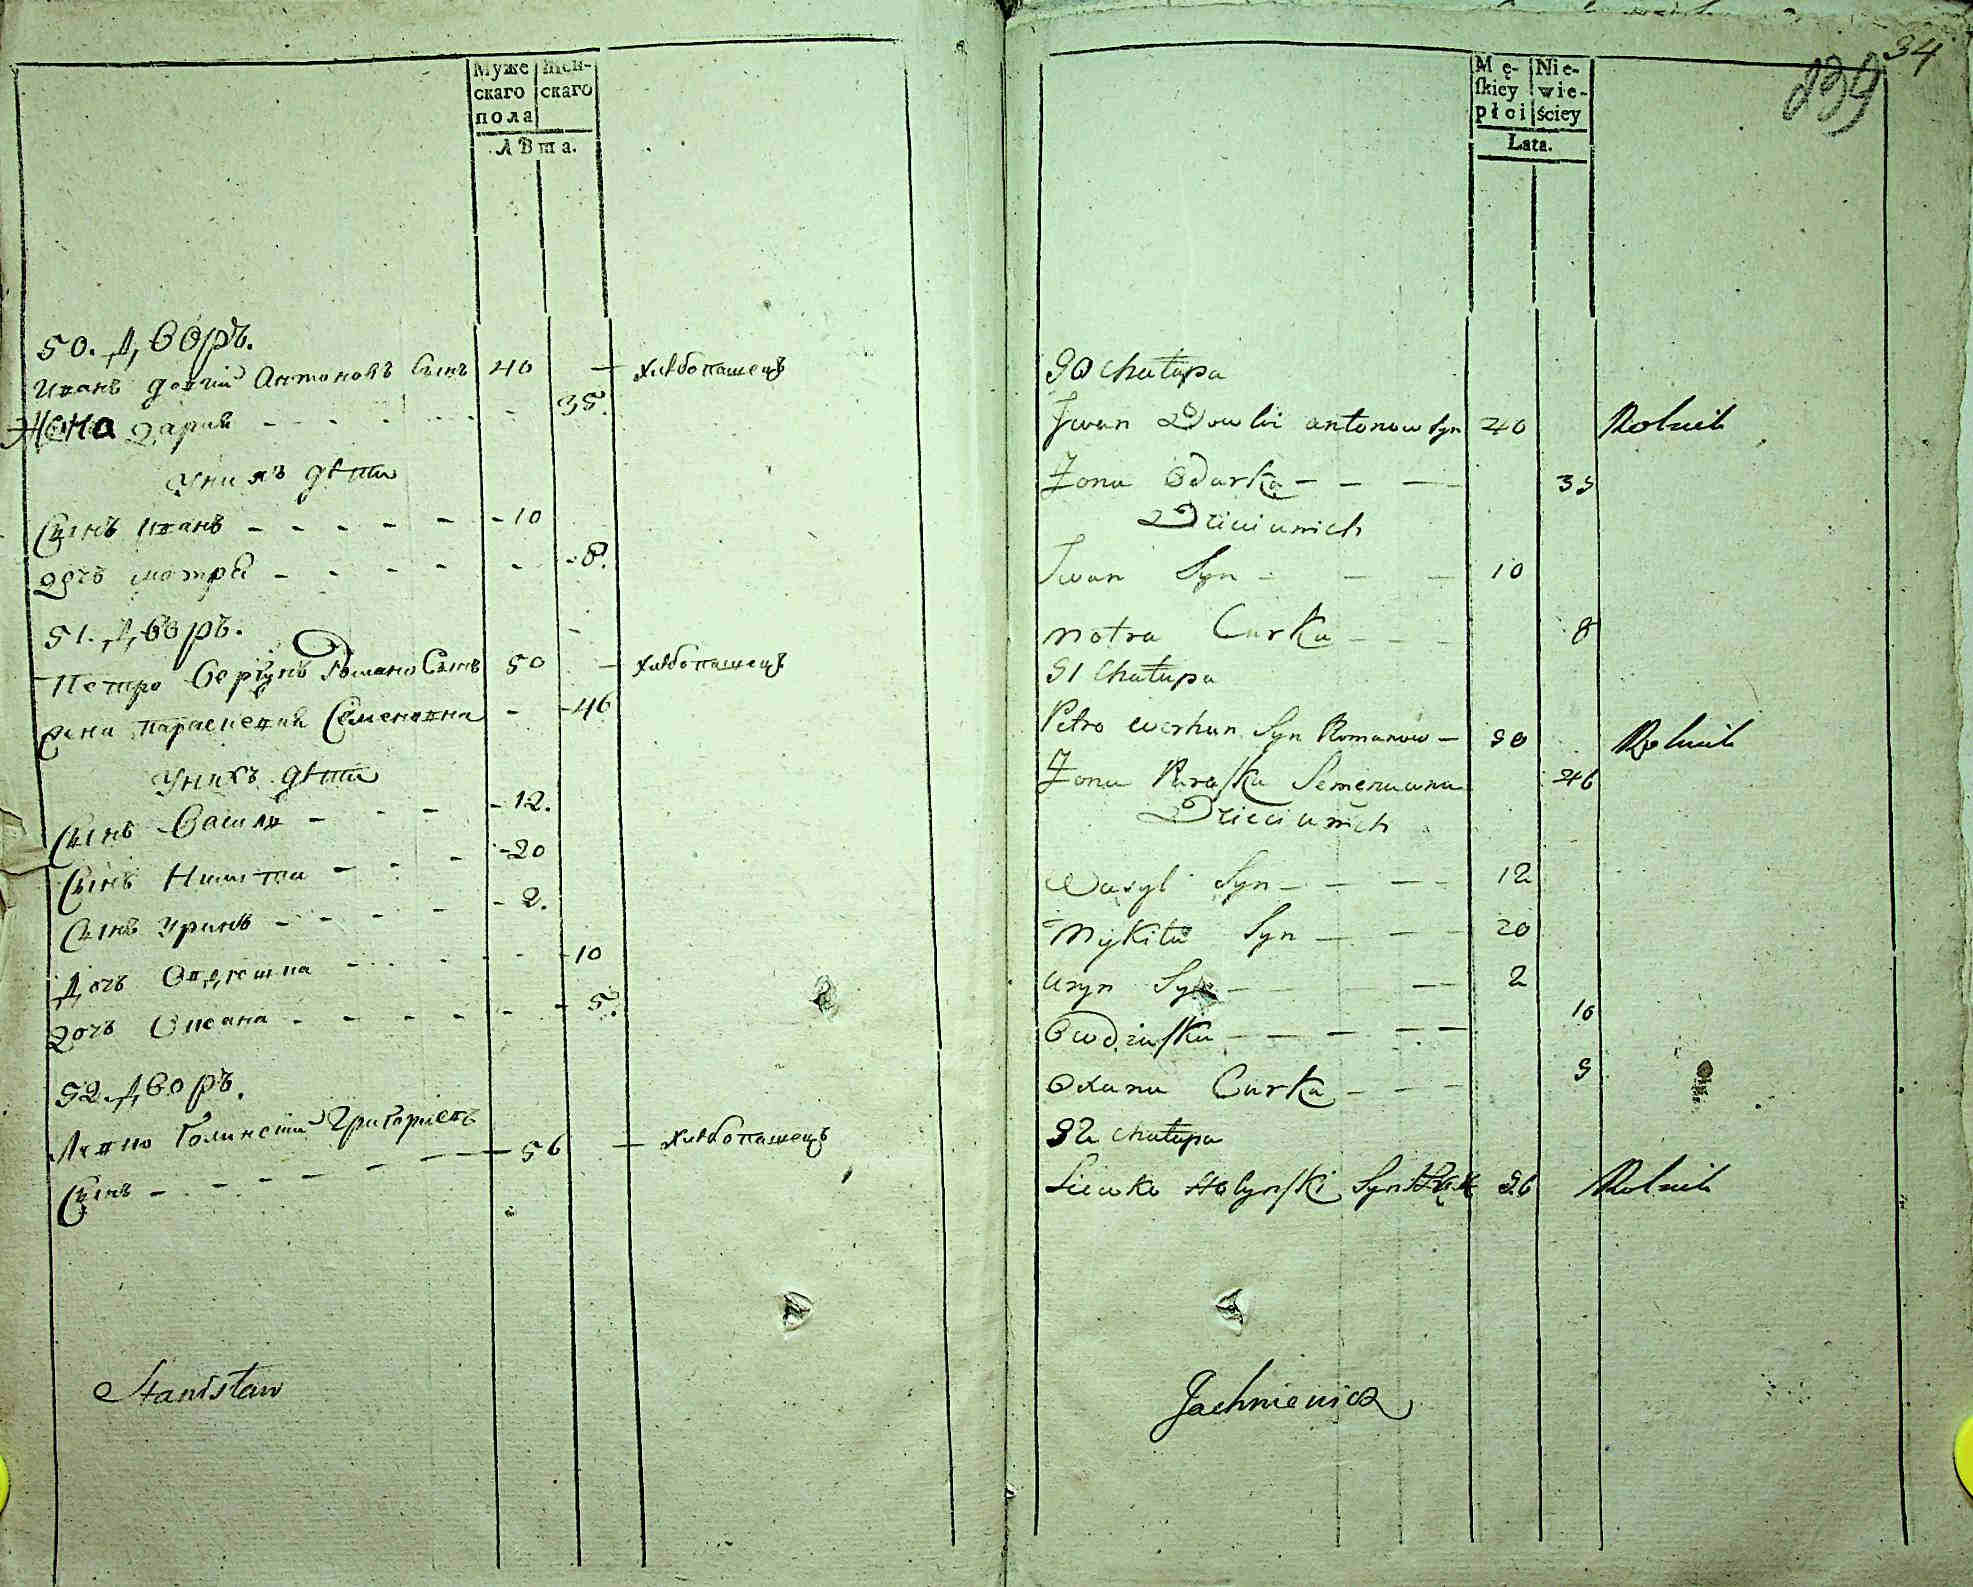 Муже Жен-
скаго скаго
пола
Лѣта.
50. Дворъ.
Иванъ Довгий Антоновъ Сынъ 40 — хлѣбопашецъ
Жена Дария - - - - - - 35.
У них дѣти
Сынъ Иванъ - - - - - - 10
Дочь Мотря - - - - - - 8.
51. Дворъ.
Петро Вергунъ Романо Сынъ 50 — хлѣбопашецъ
Жена Параскевия Семеновна - - 46
У нихъ дѣти
Сынъ Василь - - - - 12.
Сынъ Никита - - - - 20
Сынъ Уринъ - - - - - 2.
Дочь Овдюшка - - - - - 10
Дочь Оксана - - - - - - - 5.
52. Дворъ.
Левко Голинский Григориевъ
Сынъ - - - - - - 56 — хлѣбопашецъ
Stanisław
34
239
Mę- Nie-
ſkiey wie-
płci ściey
Lata.
50 chałupa
Iwan Dowhi antonow syn 40 Rolnik
Żona Odarka - - - 35
Dzieci u nich
Iwan Syn - - - 10
Motra Curka - - - 8
51 Chałupa
Petro werhun Syn Romanow - 50 Rolnik
Żona Paraſka Semenuwna 46
Dzieci u nich
Wasyl Syn - - - - 12
Mykita Syn - - - 20
Uryn Syn - - - - 2
Owdziuſka - - - - - 10
Oxana Curka - - - 5
52 chałupa
Liewko Holynſki Syn 56 Rolnik
Jachniewicz